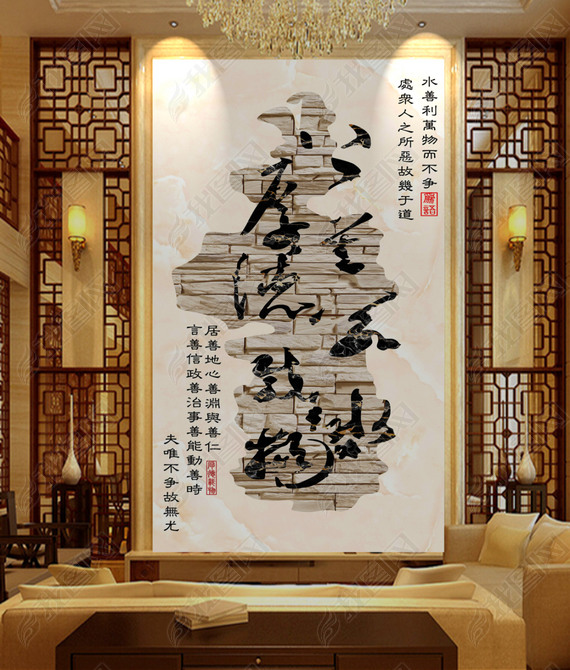 水善利萬物而不争
處衆人之所惡故幾于道
上善若水
厚德载物
居善地心善淵與善仁
言善信政善治事善能動善時
夫唯不争故無尤